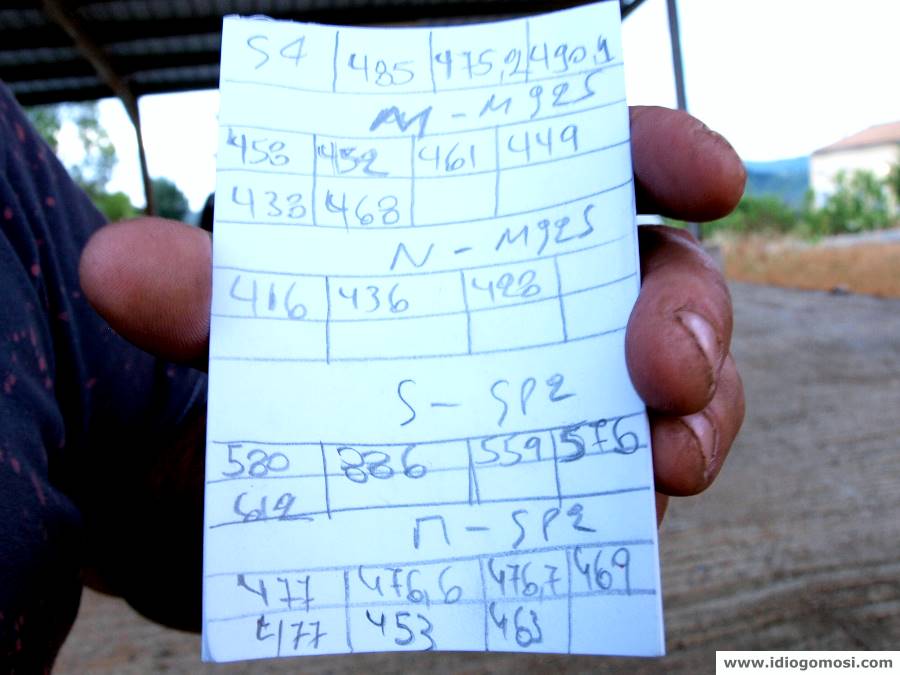 S4 485 475,2 490,1
M - M925
453 452 461 449
433 468
N - M925
416 436 428
S - SP2
580 886 559 576
612
Π - SP2
477 476,6 476,7 469
477 453 463
www.idiogomosi.com